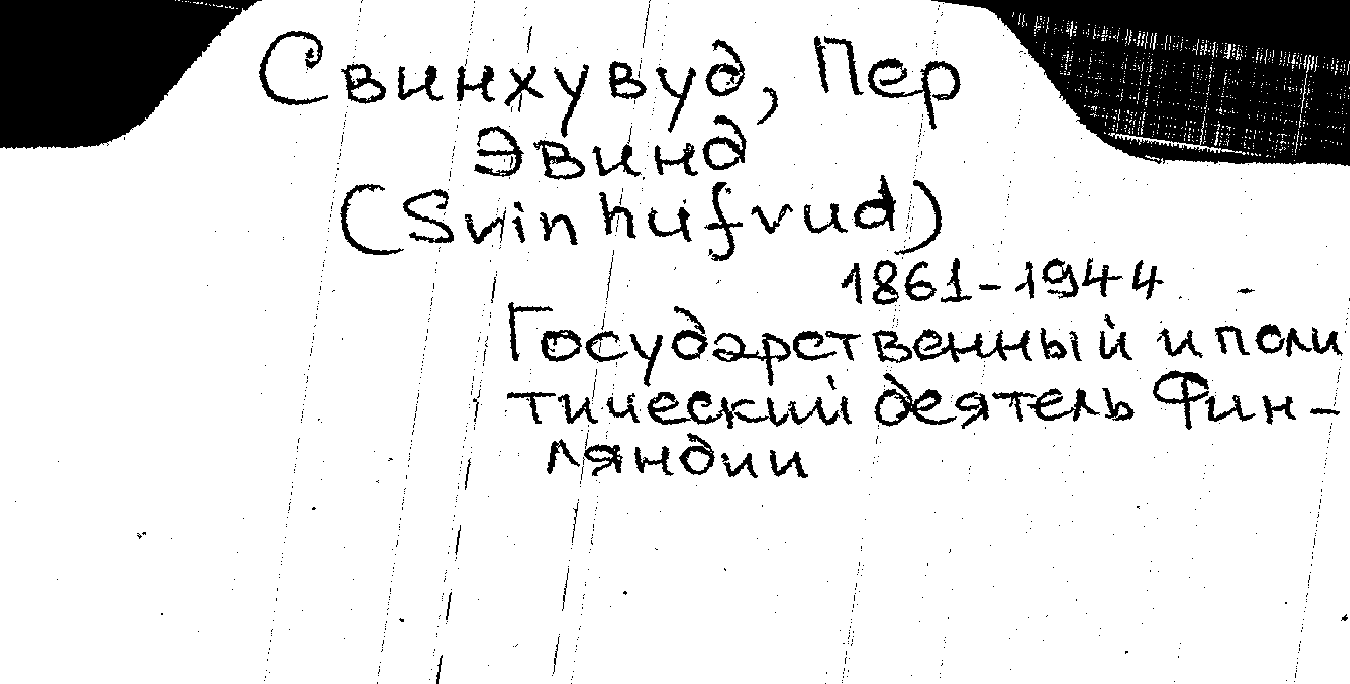 Свинхувуд, Пер
Эвинд
(Svinhufvud)
1861-1944
Государственный и поли
тический деятель Фин-
ляндии